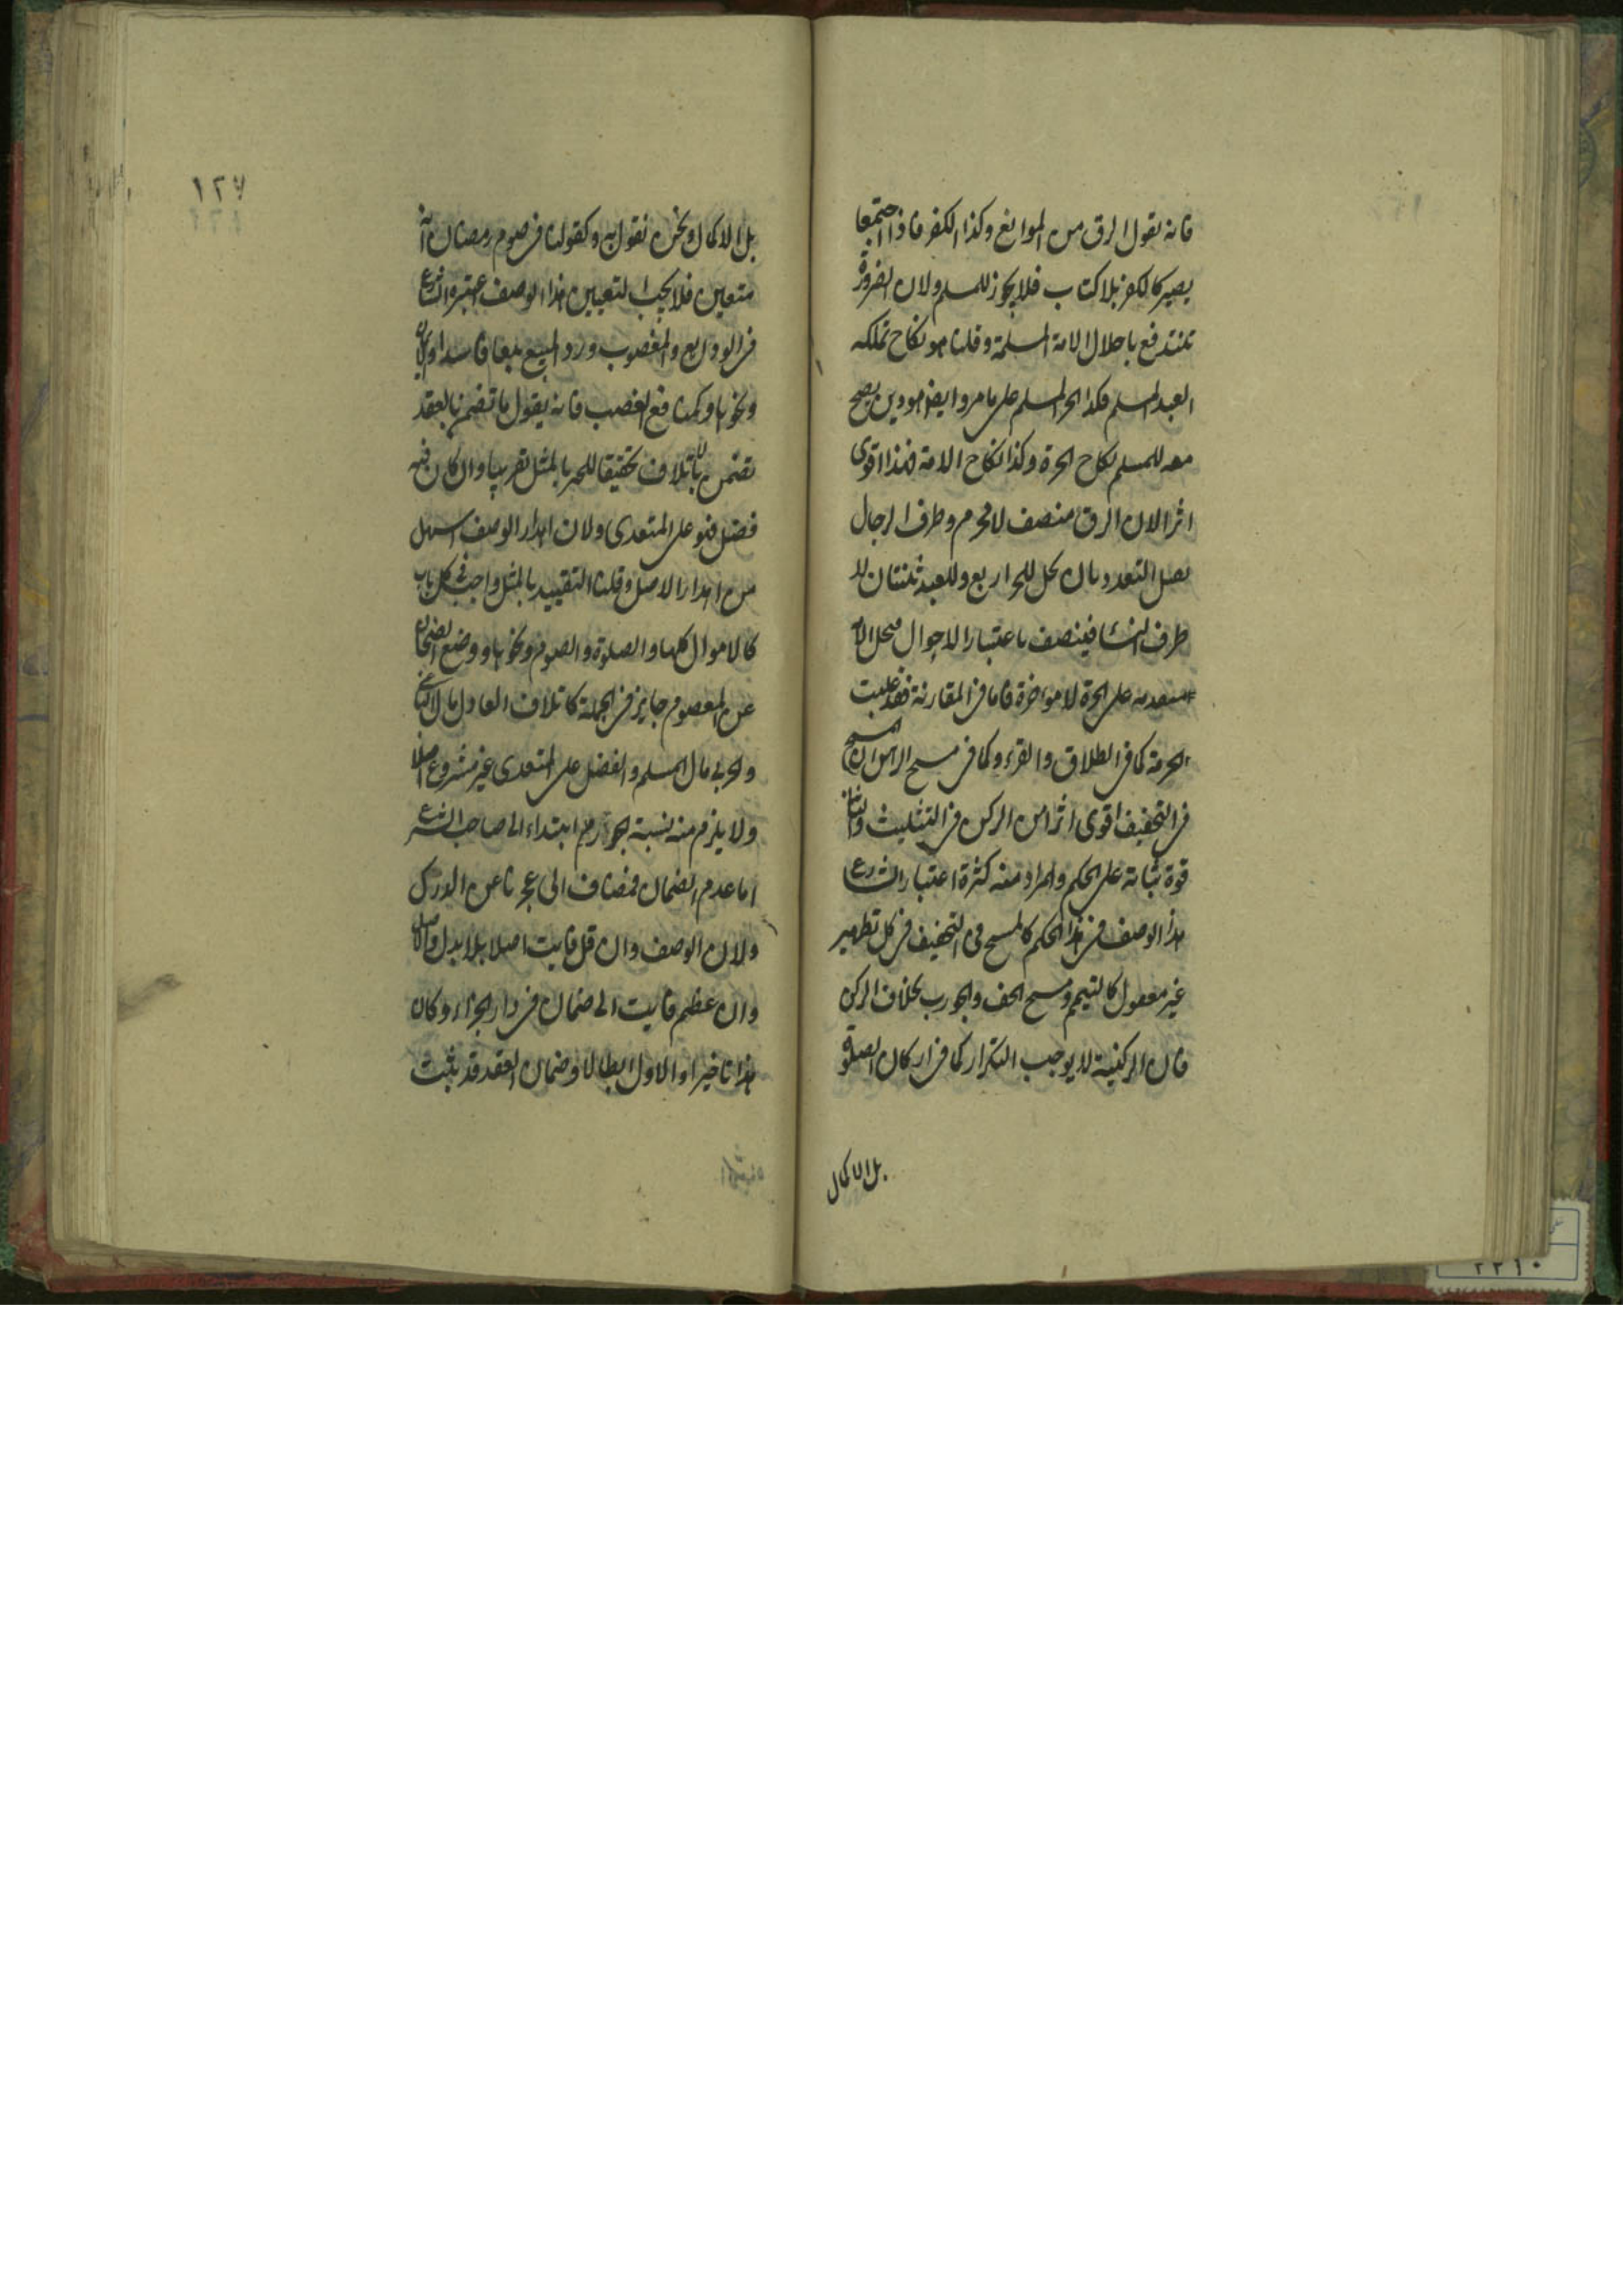 فانه يقول الرق من الموانع وكذا الكفر فاذا اجتمعا
يصير كالكفر بلا كتاب فلا يجوز للمسلم ولان الضرورة
تندفع باحلال الامة المسلمة وقلنا هو نكاح يملكه
العبد المسلم فكذا الحر المسلم على ما مر وايضا هو دين يصح
معه للمسلم نكاح الحرة وكذا نكاح الامة فهذا اقوى
اثرا لان الرق منصف لا محرم وطرف الرجال
يقبل التعدد بان يحل للحر اربع وللعبد ثنتان لا
طرف النسا فينصف باعتبار الاحوال فيحل الامة
متقدمة على الحرة لا موخرة فاما فى المقارنة فقد غلبت
الحرمة كما فى الطلاق والقرء وكما فى مسح الراس ان المسح
فى التخفيف اقوى اثرا من الركن فى التثليث والثانى
قوة ثباته على الحكم والمراد منه كثرة اعتبار الشارع
هذا الوصف فى هذا الحكم كالمسح فى التخفيف فى كل تطهير
غير معقول كالتيمم ومسح الخف والجورب بخلاف الركن
فان الركنية لا يوجب التكرار كما فى اركان الصلوة
بل الاكمال
١٢٧
بل الاكمال ونحن نقول به وكقولنا فى صوم رمضان انه
متعين فلا يجب التعيين هذا الوصف اعتبره الشارع
فى الودايع والمغصوب ورد المبيع بيعا فاسدا والايمان
ونحوها وكمنافع الغصب فانه يقول ما تضمن بالعقد
تضمن بالاتلاف تحقيقا للجبر بالمثل تقريبا وان كان فيه
فضل فهو على المتعدى ولان اهدار الوصف اسهل
من اهدار الاصل وقلنا التقييد بالمثل واجب فى كل باب
كالاموال كلها والصلوة والصوم ونحوها ووضع الضمان
عن المعصوم جايز فى الجملة كاتلاف العادل مال الباغى
والحربى مال المسلم والفضل على المتعدى غير مشروع اصلا
ولا يلزم منه نسبة الجور منه ابتداء الى صاحب الشرع
اما عدم الضمان فمضاف الى عجزنا عن الدرك
ولان الوصف وان قل فايت اصلا بلا بدل والاصل
وان عظم فايت الى ضمان فى دار الجزاء وكان
هذا تاخيرا والاول ابطالا وضمان العقد قد يثبت